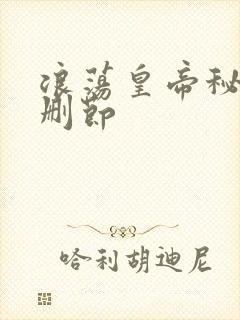 浪荡皇帝秘
删节
哈利胡迪尼